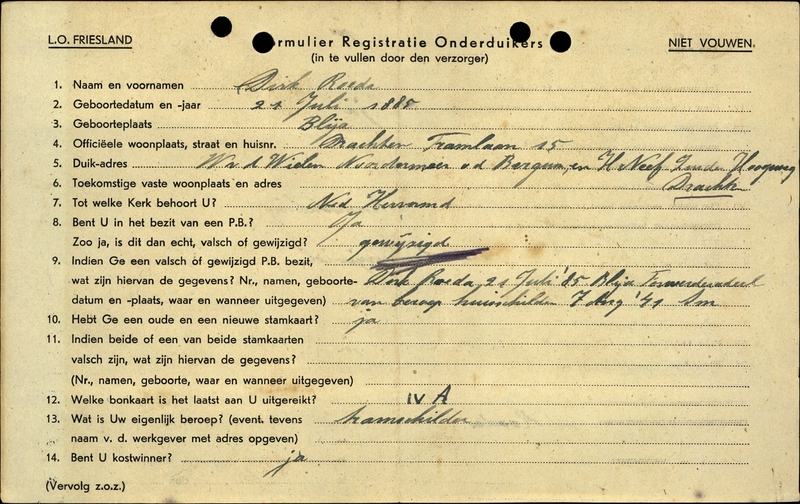 L.O. FRIESLAND
Formulier Registratie Onderduikers
NIET VOUWEN.
(in te vullen door den verzorger)
1. Naam en voornamen Dirk Roeda
2. Geboortedatum en -jaar 21 Juli 1885
3. Geboorteplaats Blija
4. Officiëele woonplaats, straat en huisnr. Drachten Tramlaan 15
5. Duik-adres Wr. d Wielen Noordermeer v d Bergum, en H Neef Zuider Hoogeweg
Drachten
6. Toekomstige vaste woonplaats en adres
7. Tot welke Kerk behoort U? Ned Hervormd
8. Bent U in het bezit van een P.B.? Ja
Zoo ja, is dit dan echt, valsch of gewijzigd? gewijzigd
9. Indien Ge een valsch of gewijzigd P.B. bezit,
wat zijn hiervan de gegevens? Nr., namen, geboorte- Dirk Roeda 21 Juli '85 Blija Ferwerderadeel
datum en -plaats, waar en wanneer uitgegeven) van beroep huisschilder 7 Aug '41
10. Hebt Ge een oude en een nieuwe stamkaart? ja
11. Indien beide of een van beide stamkaarten
valsch zijn, wat zijn hiervan de gegevens?
(Nr., namen, geboorte, waar en wanneer uitgegeven)
12. Welke bonkaart is het laatst aan U uitgereikt? IV A
13. Wat is Uw eigenlijk beroep? (event. tevens tramschilder
naam v. d. werkgever met adres opgeven)
14. Bent U kostwinner? ja
(Vervolg z.o.z.)